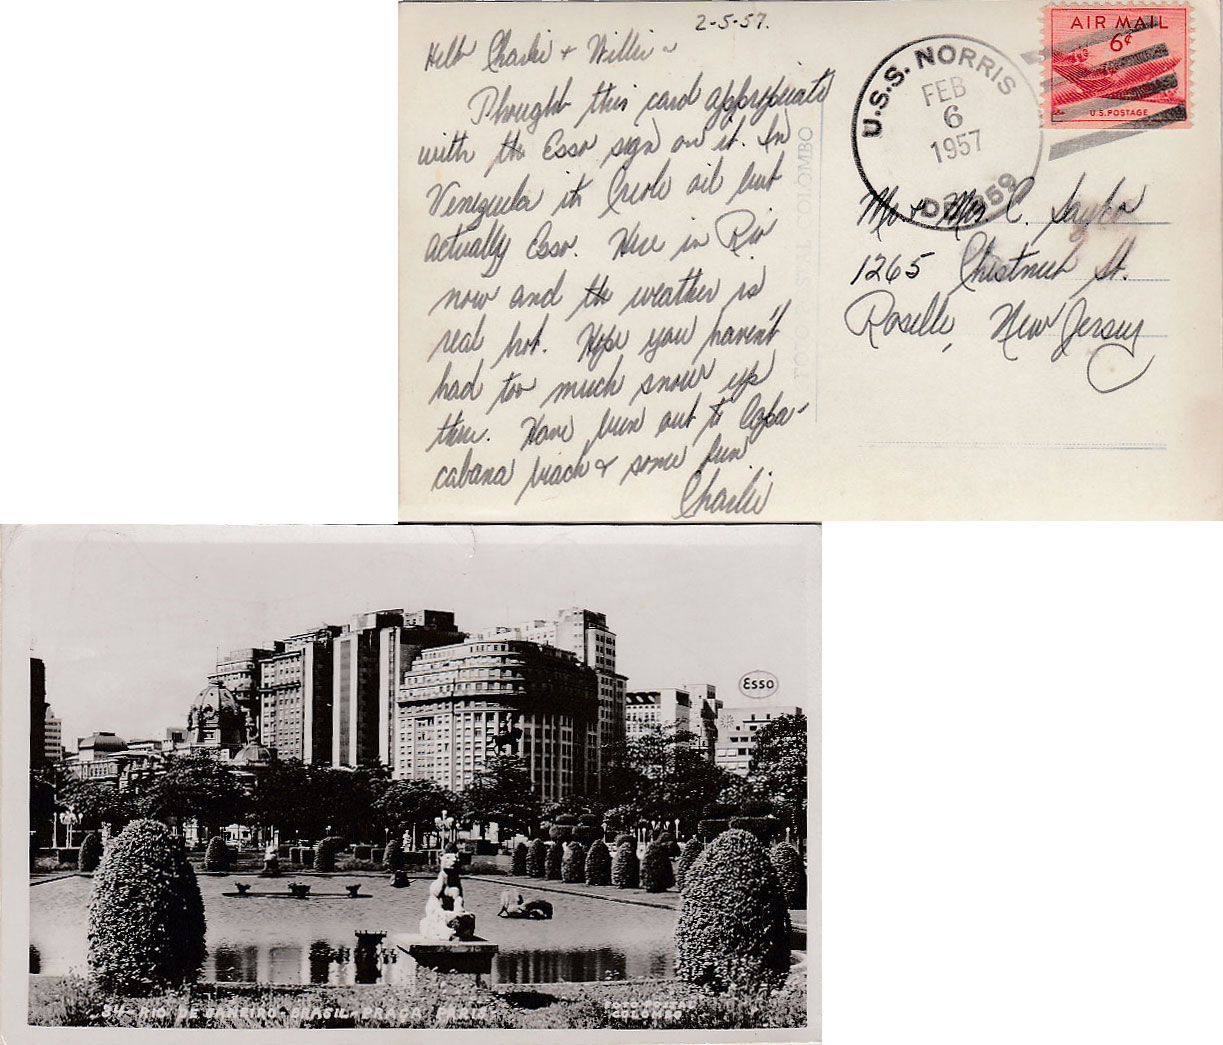 2-5-57.
Hello Charlie + Willie ~
Thought this card appropriate
with the Esso sign on it. In
Venezuela its Creole oil but
actually Esso. Here in Rio
now and the weather is
real hot. Hope you haven't
had too much snow up
there. Have been out to Copa-
cabana beach & some fun
Charlie
FOTO POSTAL COLOMBO
U.S.S. NORRIS
FEB
6
1957
DD 859
AIR MAIL
6¢
U.S. POSTAGE
Mr. + Mrs C.
1265 Chestnut St.
Roselle, New Jersey
Esso
84-RIO DE JANEIRO-BRASIL-PRAÇA PARIS-
FOTO POSTAL
COLOMBO